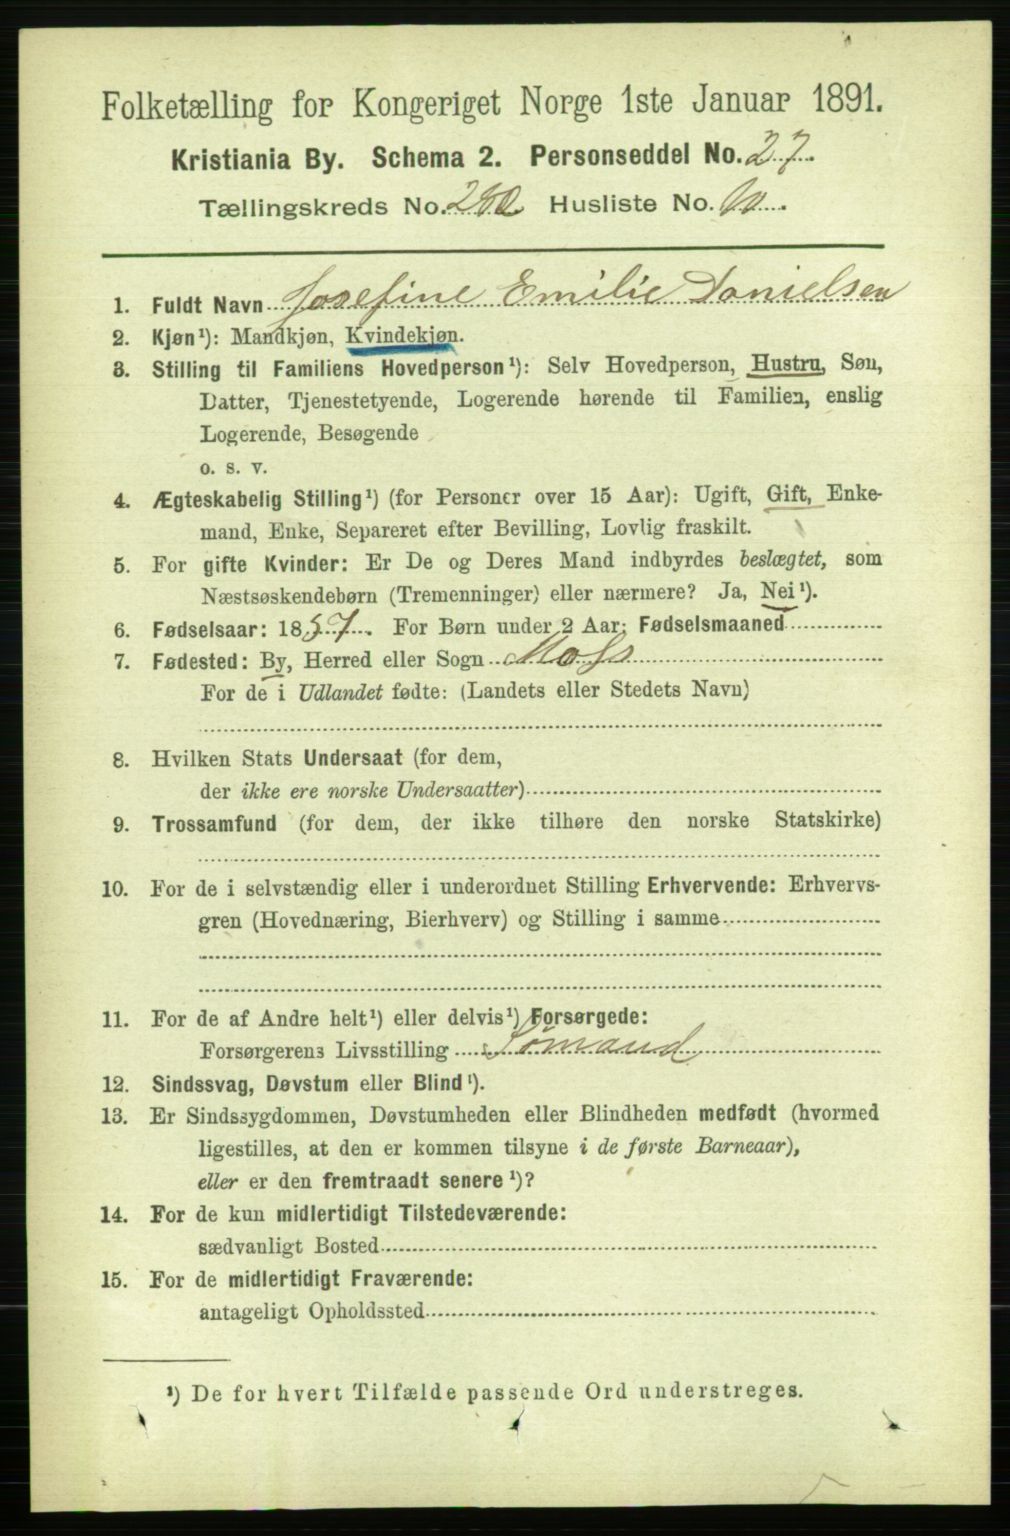 Folketælling for Kongeriget Norge 1ste Januar 1891.
Kristiania By. Schema 2. Personseddel No. 27.
Tællingskreds No. 280 Husliste No. 10.
1. Fuldt Navn Josefine Emilie Danielsen
2. Kjøn¹): Mandkjøn, Kvindekjøn.
3. Stilling til Familiens Hovedperson¹): Selv Hovedperson, Hustru, Søn,
Datter, Tjenestetyende, Logerende hørende til Familien, enslig
Logerende, Besøgende
o. s. v.
4. Ægteskabelig Stilling¹) (for Personer over 15 Aar): Ugift, Gift, Enke-
mand, Enke, Separeret efter Bevilling, Lovlig fraskilt.
5. For gifte Kvinder: Er De og Deres Mand indbyrdes beslægtet, som
Næstsøskendebørn (Tremenninger) eller nærmere? Ja, Nei¹).
6. Fødselsaar: 1857. For Børn under 2 Aar: Fødselsmaaned
7. Fødested: By, Herred eller Sogn Moss
For de i Udlandet fødte: (Landets eller Stedets Navn)
8. Hvilken Stats Undersaat (for dem,
der ikke ere norske Undersaatter)
9. Trossamfund (for dem, der ikke tilhøre den norske Statskirke)
10. For de i selvstændig eller i underordnet Stilling Erhvervende: Erhvervs-
gren (Hovednæring, Bierhverv) og Stilling i samme
11. For de af Andre helt¹) eller delvis¹) Forsørgede:
Forsørgerens Livsstilling Sømand
12. Sindssvag, Døvstum eller Blind¹).
13. Er Sindssygdommen, Døvstumheden eller Blindheden medfødt (hvormed
ligestilles, at den er kommen tilsyne i de første Barneaar),
eller er den fremtraadt senere¹)?
14. For de kun midlertidigt Tilstedeværende:
sædvanligt Bosted
15. For de midlertidigt Fraværende:
antageligt Opholdssted
¹) De for hvert Tilfælde passende Ord understreges.